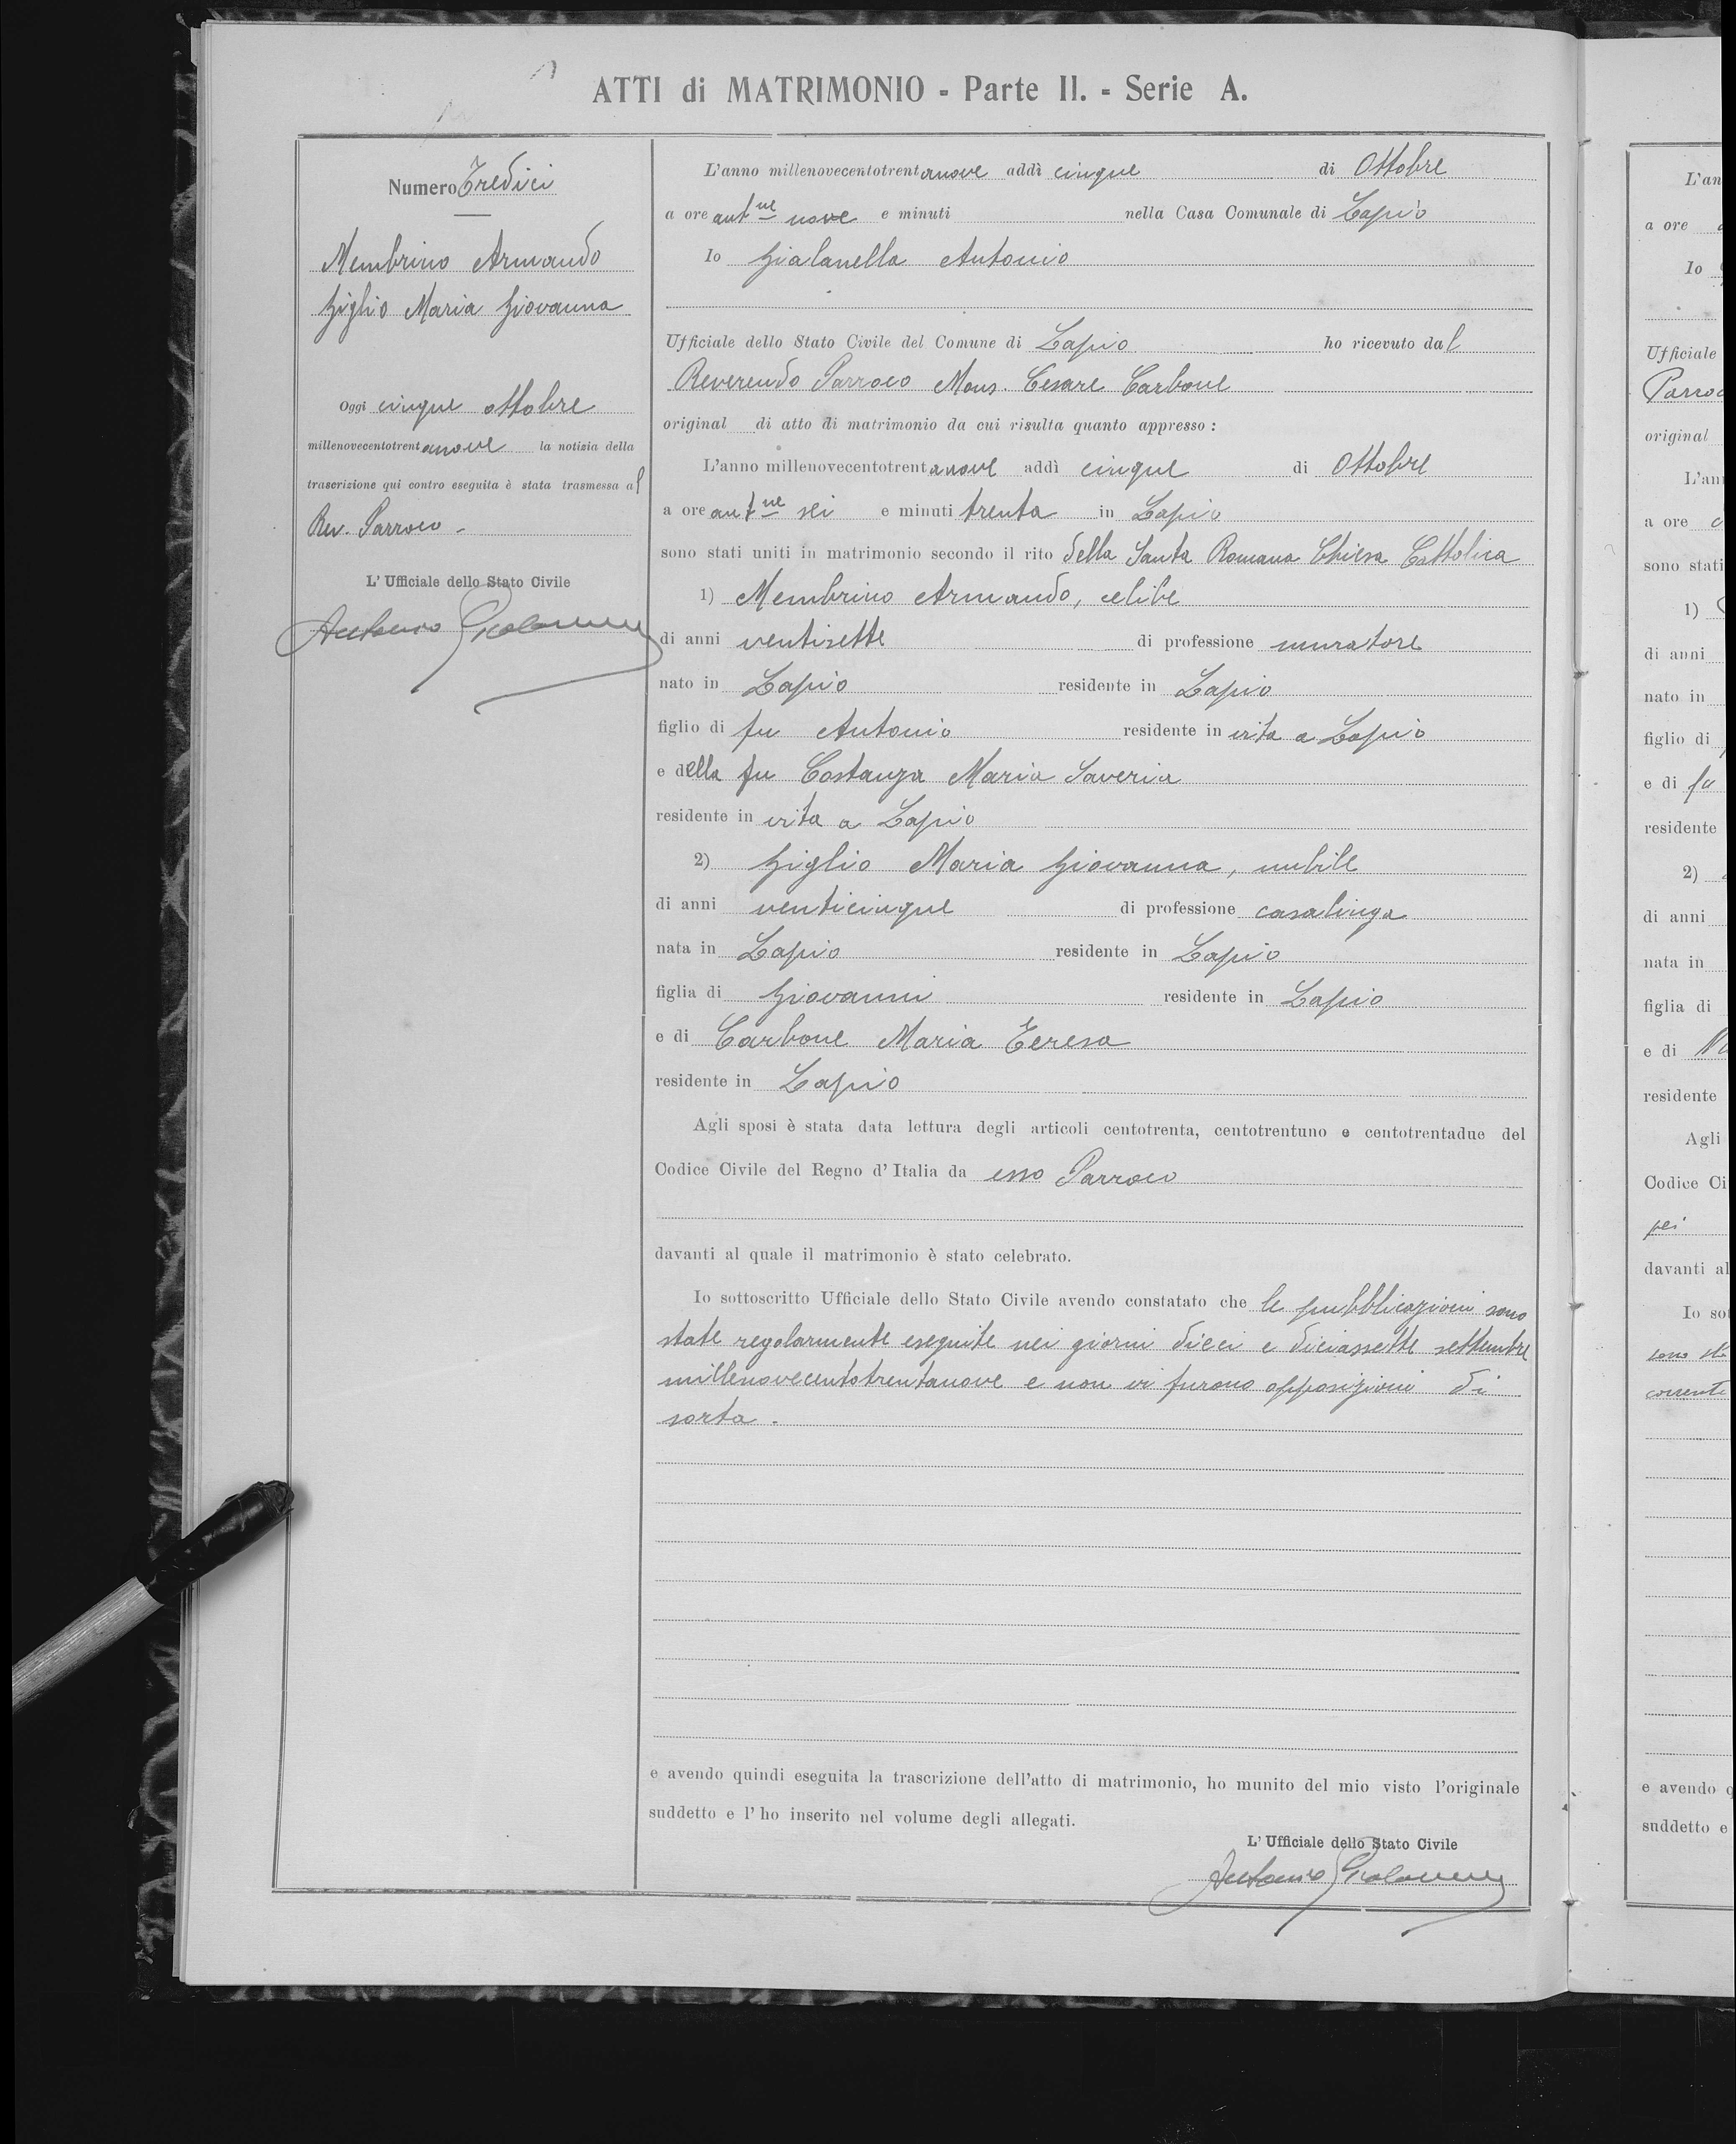 ATTI di MATRIMONIO - Parte II. - Serie A.
Numero Tredici
Membrino Armando
Giglio Maria Giovanna
Oggi cinque ottobre
millenovecentotrentanove la notizia della
trascrizione qui contro eseguita è stata trasmessa al
Rev. Parroco -
L'Ufficiale dello Stato Civile
Antonio
L'anno millenovecentotrentanove addì cinque di Ottobre
a ore antne nove e minuti nella Casa Comunale di Lapio
Io Gialanella Antonio
Ufficiale dello Stato Civile del Comune di Lapio ho ricevuto dal
Reverendo Parroco Mons. Cesare Carbone
original di atto di matrimonio da cui risulta quanto appresso :
L'anno millenovecentotrentanove addì cinque di Ottobre
a ore antne sei e minuti trenta in Lapio
sono stati uniti in matrimonio secondo il rito della Santa Romana Chiesa Cattolica
1) Membrino Armando, celibe
di anni ventisette di professione muratore
nato in Lapio residente in Lapio
figlio di fu Antonio residente in vita a Lapio
e della fu Costanza Maria Saveria
residente in vita a Lapio
2) Giglio Maria Giovanna, nubile
di anni venticinque di professione casalinga
nata in Lapio residente in Lapio
figlia di Giovanni residente in Lapio
e di Carbone Maria Teresa
residente in Lapio
Agli sposi è stata data lettura degli articoli centotrenta, centotrentuno e centotrentadue del
Codice Civile del Regno d'Italia da esso Parroco
davanti al quale il matrimonio è stato celebrato.
Io sottoscritto Ufficiale dello Stato Civile avendo constatato che le pubblicazioni sono
state regolarmente eseguite nei giorni dieci e diciassette settembre
millenovecentotrentanove e non vi furono opposizioni di
sorta.
e avendo quindi eseguita la trascrizione dell'atto di matrimonio, ho munito del mio visto l'originale
suddetto e l'ho inserito nel volume degli allegati.
L'Ufficiale dello Stato Civile
Antonio
L'an
a ore
Io
Ufficiale
Parroc
original
L'an
a ore
sono stati
1)
di anni
nato in
figlio di
e di fu
residente
2)
di anni
nata in
figlia di
e di
residente
Agli
Codice Ci
davanti al
Io sot
corrente
e avendo q
suddetto e